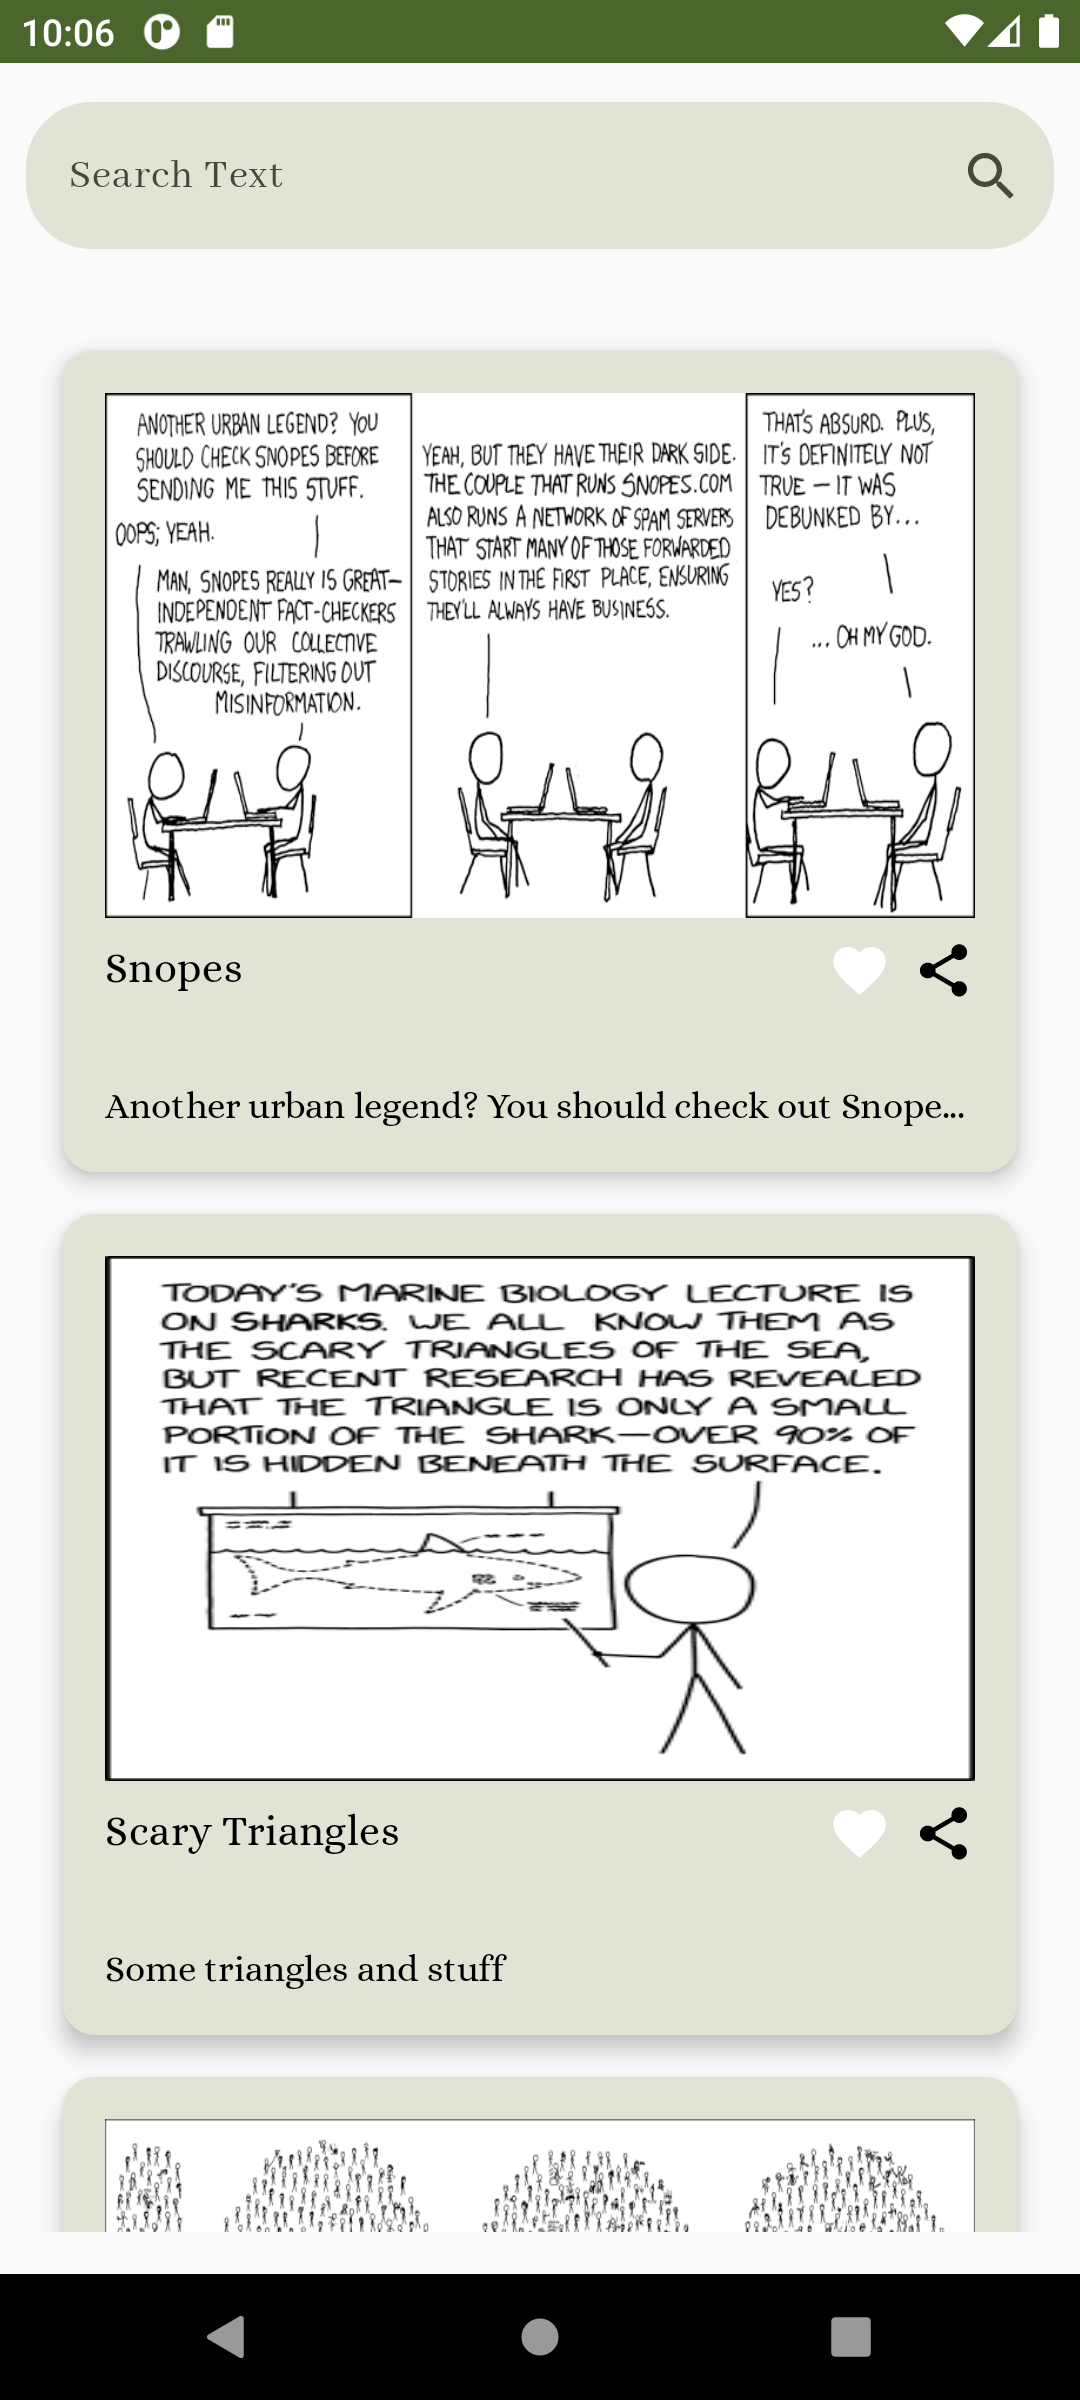 10:06
Search Text
ANOTHER URBAN LEGEND? YOU
SHOULD CHECK SNOPES BEFORE
SENDING ME THIS STUFF.
OOPS; YEAH.
MAN, SNOPES REALLY IS GREAT—
INDEPENDENT FACT-CHECKERS
TRAWLING OUR COLLECTIVE
DISCOURSE, FILTERING OUT
MISINFORMATION.
YEAH, BUT THEY HAVE THEIR DARK SIDE.
THE COUPLE THAT RUNS SNOPES.COM
ALSO RUNS A NETWORK OF SPAM SERVERS
THAT START MANY OF THOSE FORWARDED
STORIES IN THE FIRST PLACE, ENSURING
THEY'LL ALWAYS HAVE BUSINESS.
THAT'S ABSURD. PLUS,
IT'S DEFINITELY NOT
TRUE — IT WAS
DEBUNKED BY...
YES?
... OH MY GOD.
Snopes
Another urban legend? You should check out Snope...
TODAY'S MARINE BIOLOGY LECTURE IS
ON SHARKS. WE ALL KNOW THEM AS
THE SCARY TRIANGLES OF THE SEA,
BUT RECENT RESEARCH HAS REVEALED
THAT THE TRIANGLE IS ONLY A SMALL
PORTION OF THE SHARK—OVER 90% OF
IT IS HIDDEN BENEATH THE SURFACE.
Scary Triangles
Some triangles and stuff